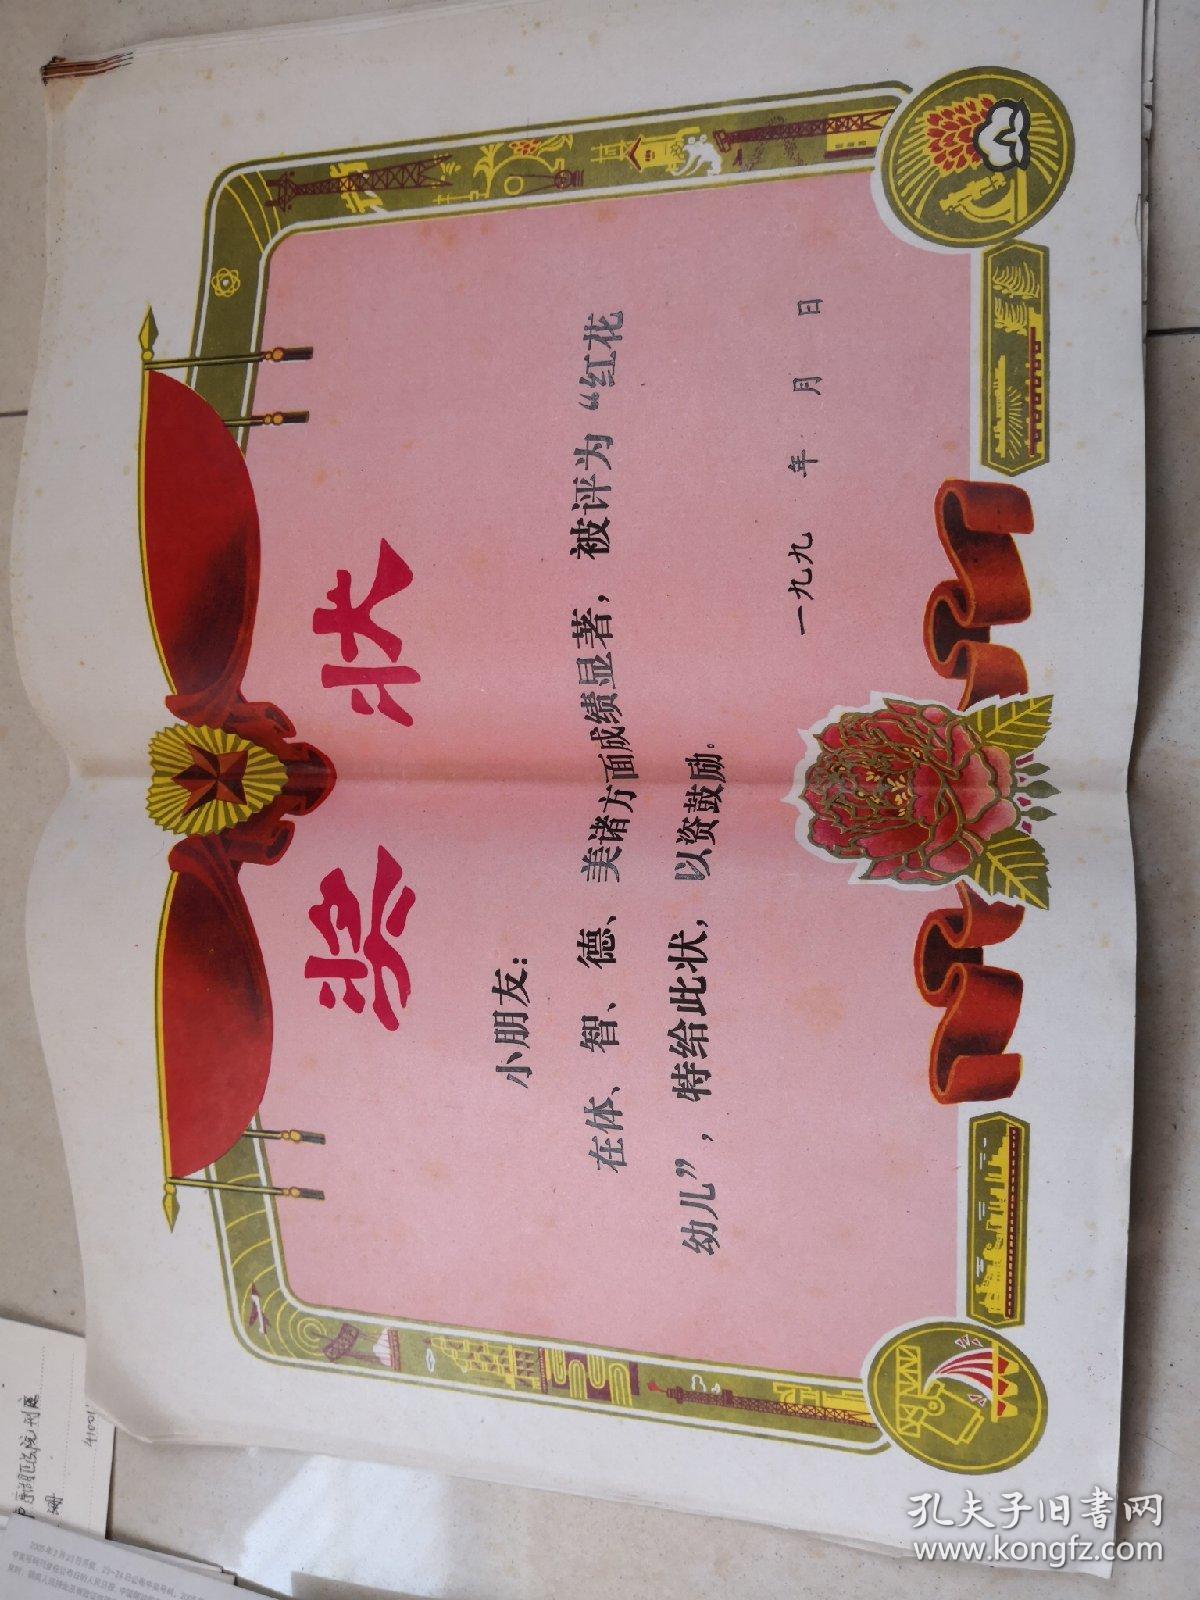 奖状
小朋友：
在体、智、德、美诸方面成绩显著，被评为“红花
幼儿”，特给此状，以资鼓励。
一九九 年 月 日
孔夫子旧书网
www.kongfz.com